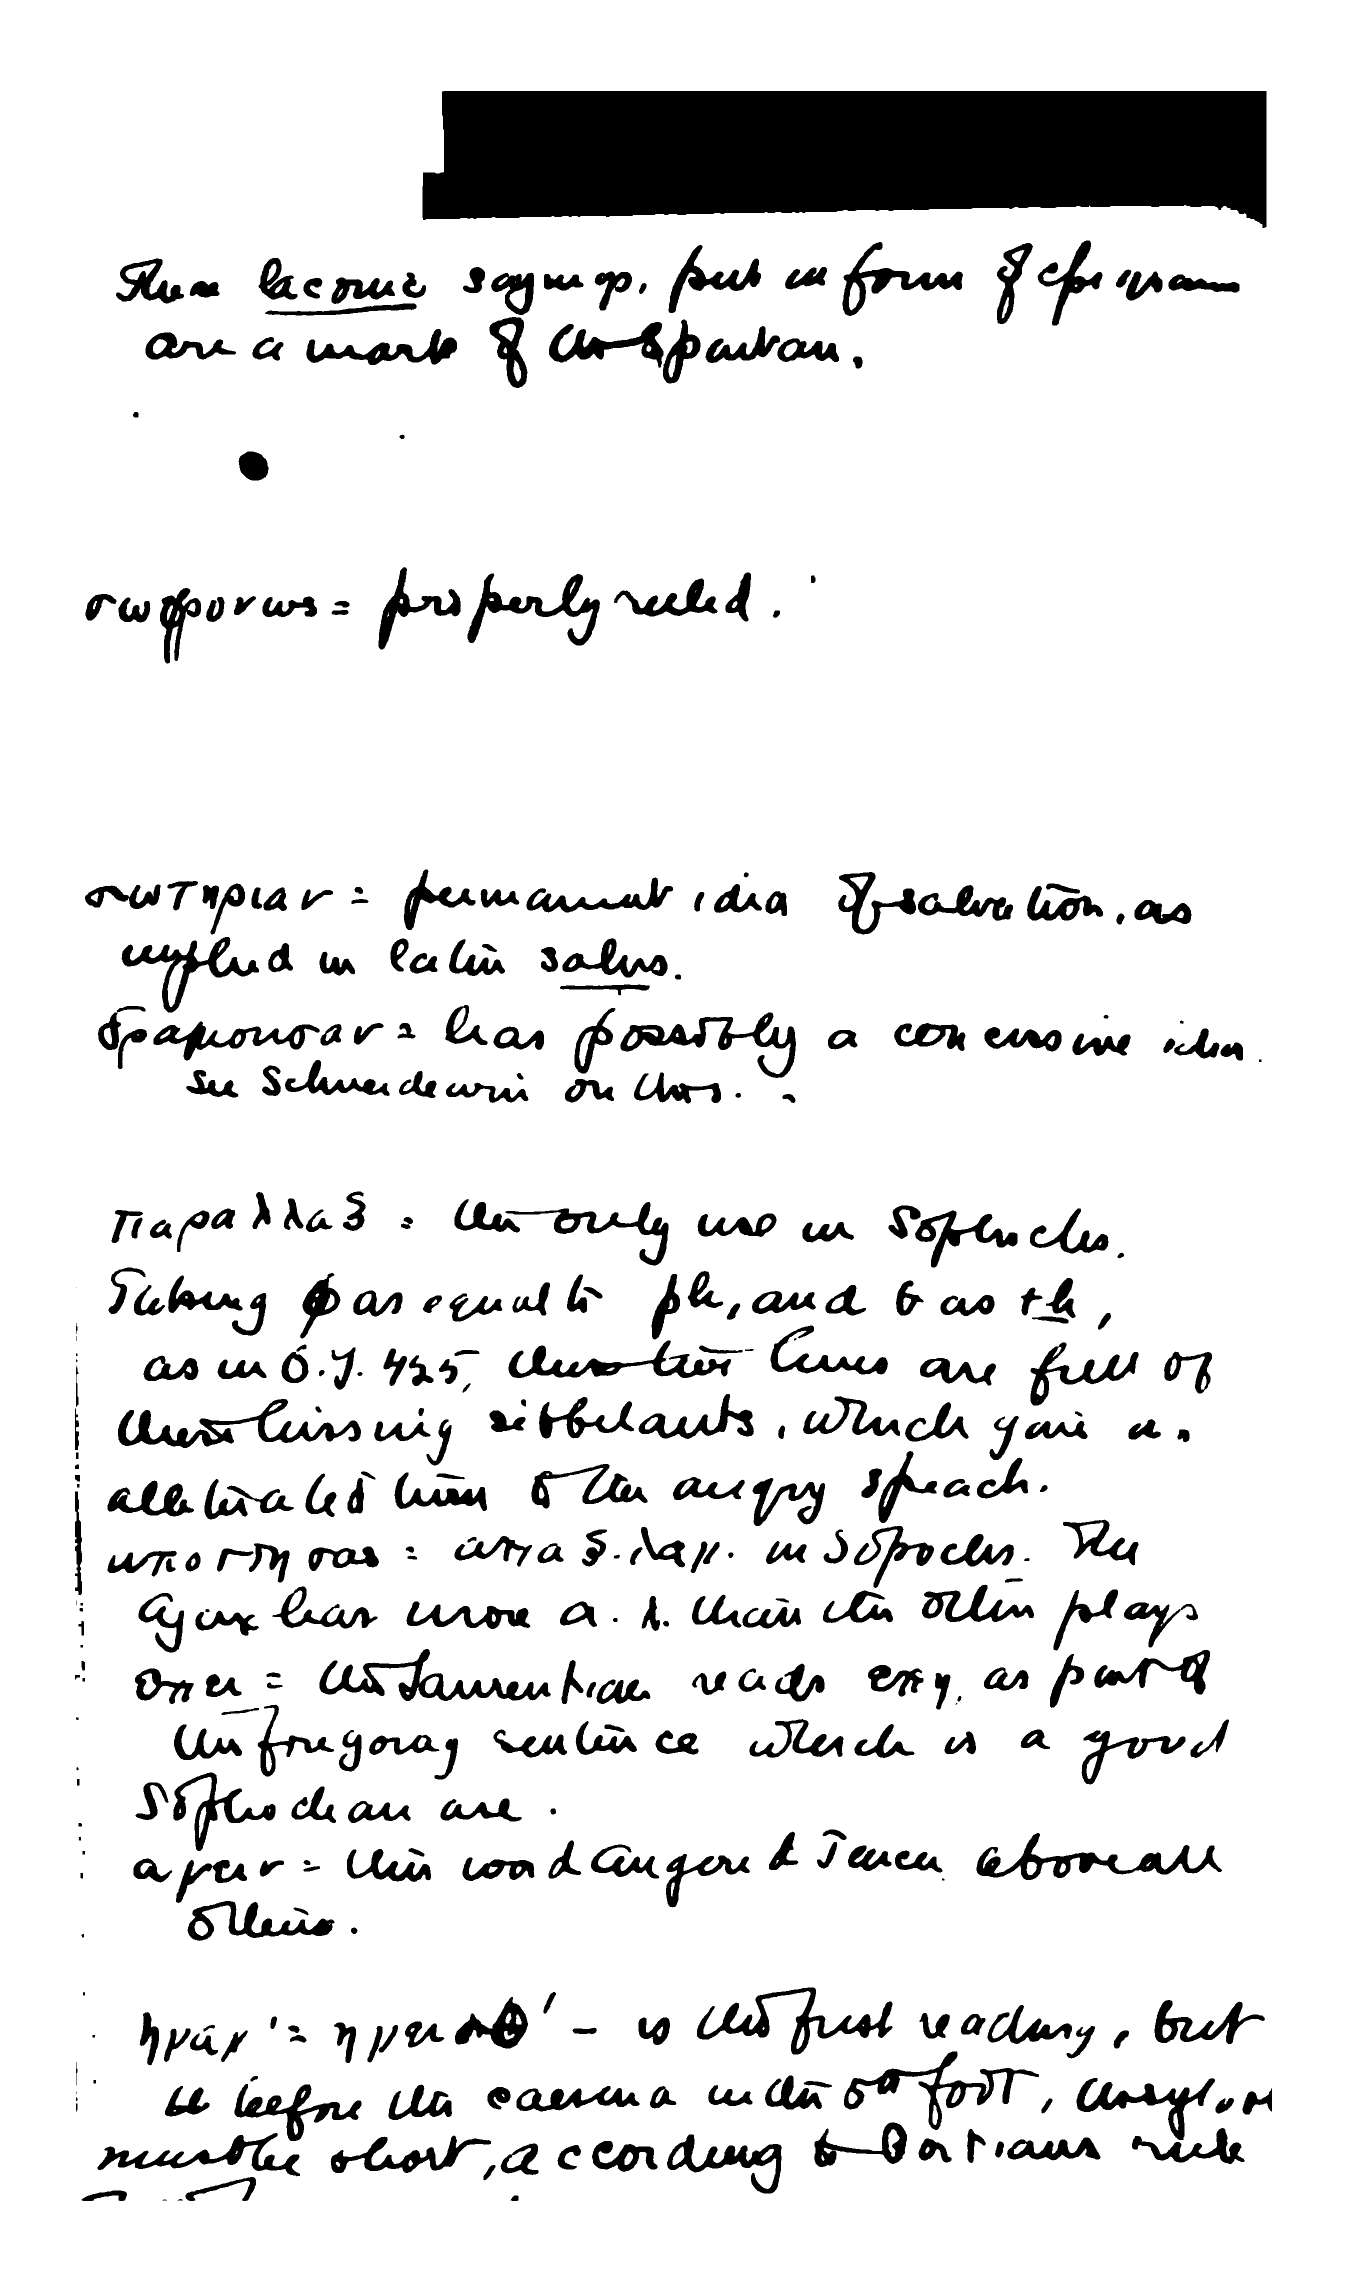 These laconic sayings, put in form of epigrams
are a mark of the Spartan.
σωφρονως = properly ruled.
σωτηριαν = permanent idea of salvation, as
implied in latin salus.
δραμουσαν = has possibly a concessive idea
see Schneidewin on this.
παραλλαξ = the only use in Sophocles.
Taking φ as equal to ph, and θ as th,
as in O.T. 425, these two lines are full of
these hissing sibbelants, which give an
alliterated him to the angry speach.
= απαξ. λεγ. in Sophocles. The
Ajax has more a. λ. than the other plays
οπει = the Laurentian reads επη, as part of
the foregoing sentence which is a good
Sophoclean use.
αγειν = this word angered Teucer above all
others.
ημαρ' = ημεισθ' - is the first reading, but
before the caesura in the 5th foot, the syl. or
must be short, according to Porsians rule